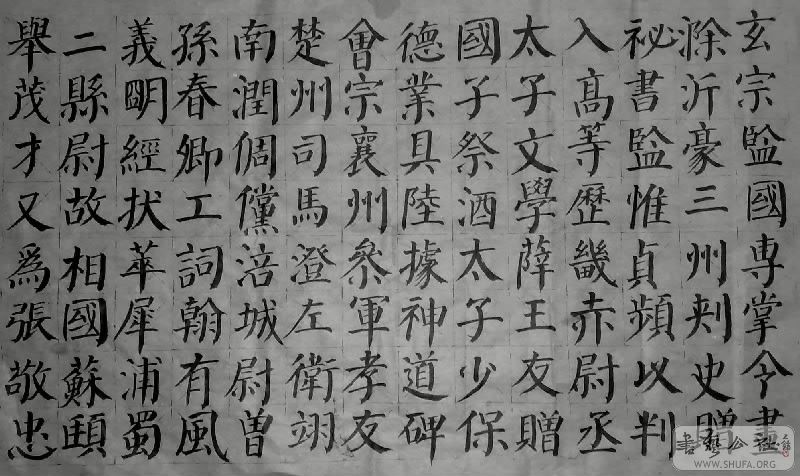 玄宗監國専掌令畫
滁沂豪三州刾史贈
祕書監惟貞頻以判
入髙等歷畿赤尉丞
太子文學薛王友贈
國子祭酒太子少保
德業具陸據神道碑
會宗襄州叅軍孝友
楚州司馬澄左衛翊
南潤倜儻涪城尉曽
孫春卿工詞翰有風
義眀經拔萃犀浦蜀
二縣尉故相國蘇頲
舉茂才又爲張敬忠
書藝公社
WWW.SHUFA.ORG